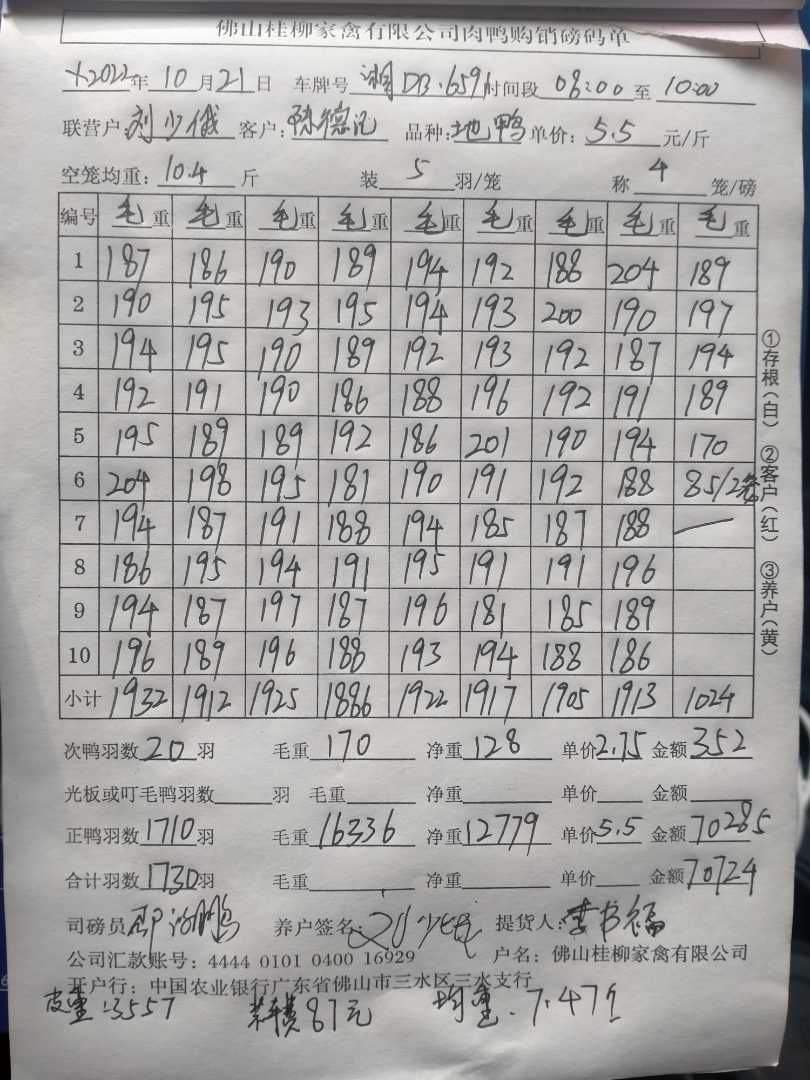 佛山桂柳家禽有限公司肉鸭购销磅码单
2022年 10月21日 车牌号 湘DB.6591 时间段 08:00 至 10:00
联营户:刘少俄 客户:陈德记 品种:地鸭 单价:5.5 元/斤
空笼均重:10.4 斤 装 5 羽/笼 称 4 笼/磅
编号 毛重 毛重 毛重 毛重 毛重 毛重 毛重 毛重 毛重
1 187 186 190 189 194 192 188 204 189
2 190 195 193 195 194 193 200 190 197
3 194 195 190 189 192 193 192 187 194
4 192 191 190 186 188 196 192 191 189
5 195 189 189 192 186 201 190 194 170
6 204 198 195 181 190 191 192 188 85/2笼
7 194 187 191 188 194 185 187 188 —
8 186 195 194 191 195 191 191 196
9 194 187 197 187 196 181 185 189
10 196 189 196 188 193 194 188 186
小计 1932 1912 1925 1886 1922 1917 1905 1913 1024
①存根(白) ②客户(红) ③养户(黄)
次鸭羽数 20 羽 毛重 170 净重 128 单价 2.75 金额 352
光板或叮毛鸭羽数 羽 毛重 净重 单价 金额
正鸭羽数 1710 羽 毛重 16336 净重 12779 单价 5.5 金额 70285
合计羽数 1730 羽 毛重 净重 单价 金额 70724
司磅员 鹏 养户签名: 刘少俄 提货人: 李书福
公司汇款账号: 4444 0101 0400 16929 户名: 佛山桂柳家禽有限公司
开户行: 中国农业银行广东省佛山市三水区三水支行
皮重:3557 费87元 均重:7.47斤